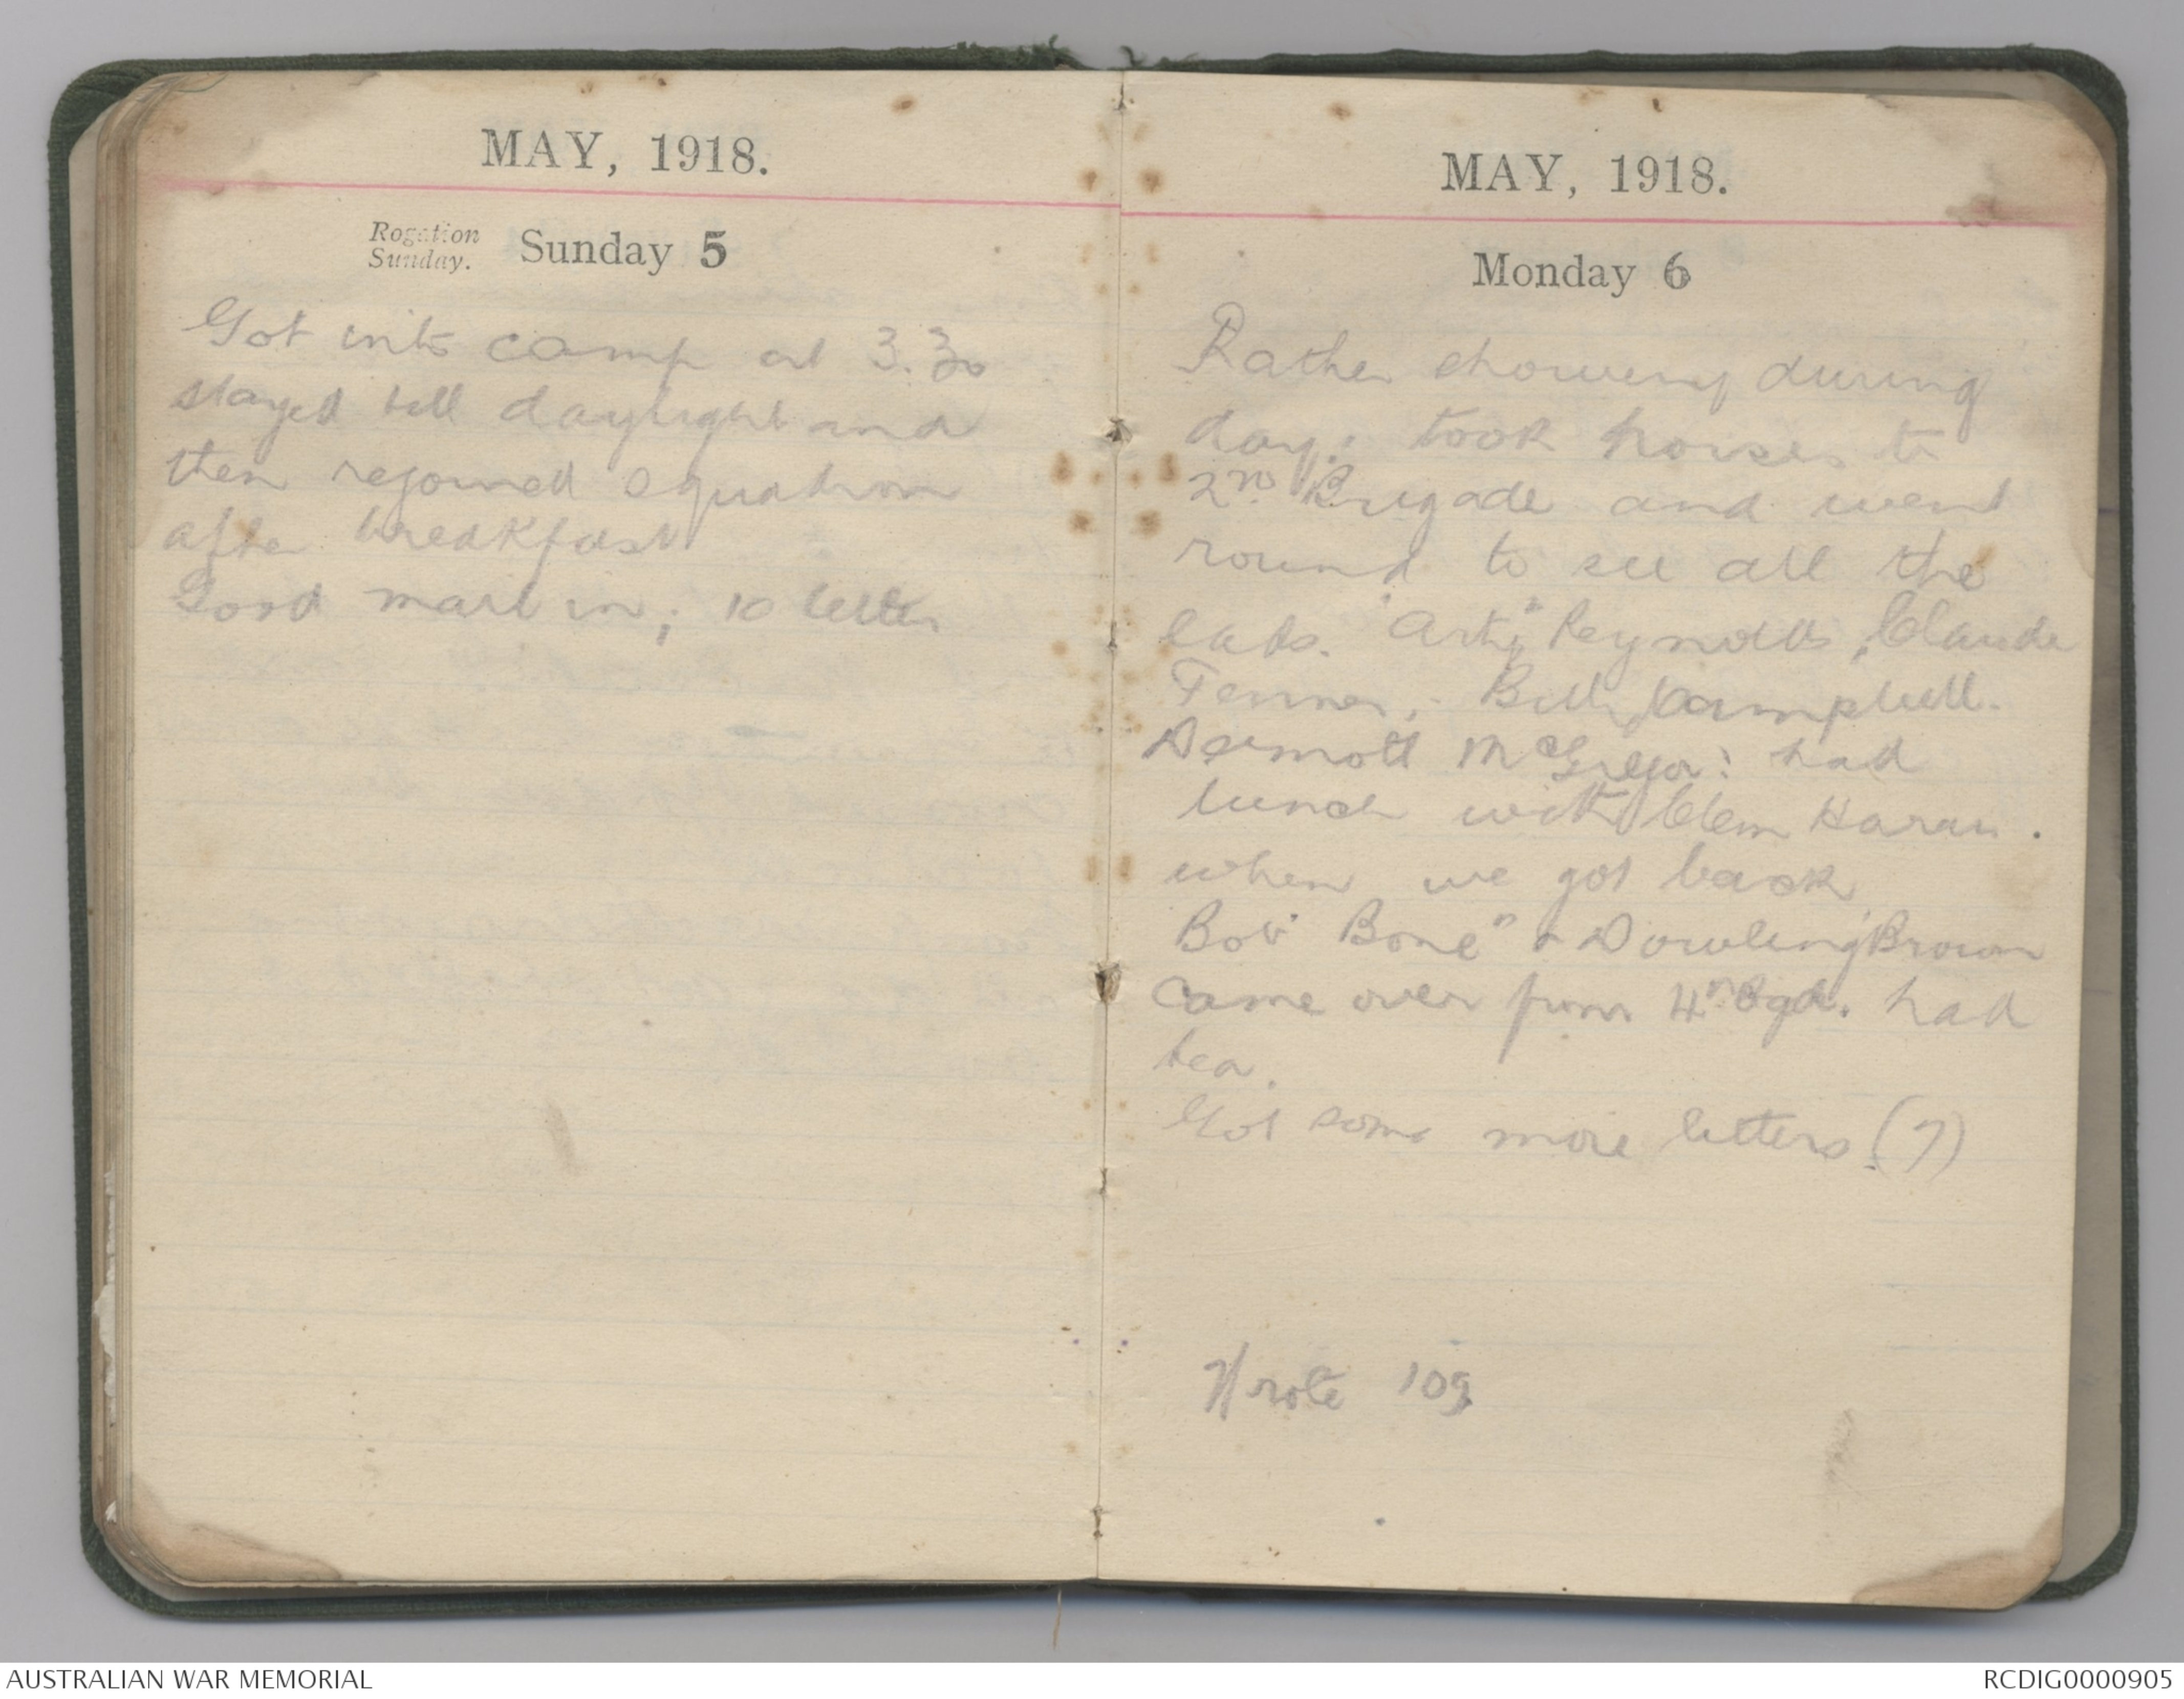 MAY, 1918.
Rogation
Sunday.
Sunday 5
Got into camp at 3.30
stayed till daylight and
then rejoined squadron
after breakfast
Good mail in; 10 letters
MAY, 1918.
Monday 6
Rather showery during
day; took horses to
2nd Brigade and went
round to see all the
lads. "Arty" Reynolds, Claude
Fenner, Bill Campbell.
Dermott McGregor: had
lunch with Clem Haran.
when we got back
Bob "Bone" & Dowling Brown
came over from 4th Bgde. had
tea.
Got some more letters. (7)
Wrote 109
AUSTRALIAN WAR MEMORIAL
RCDIG0000905